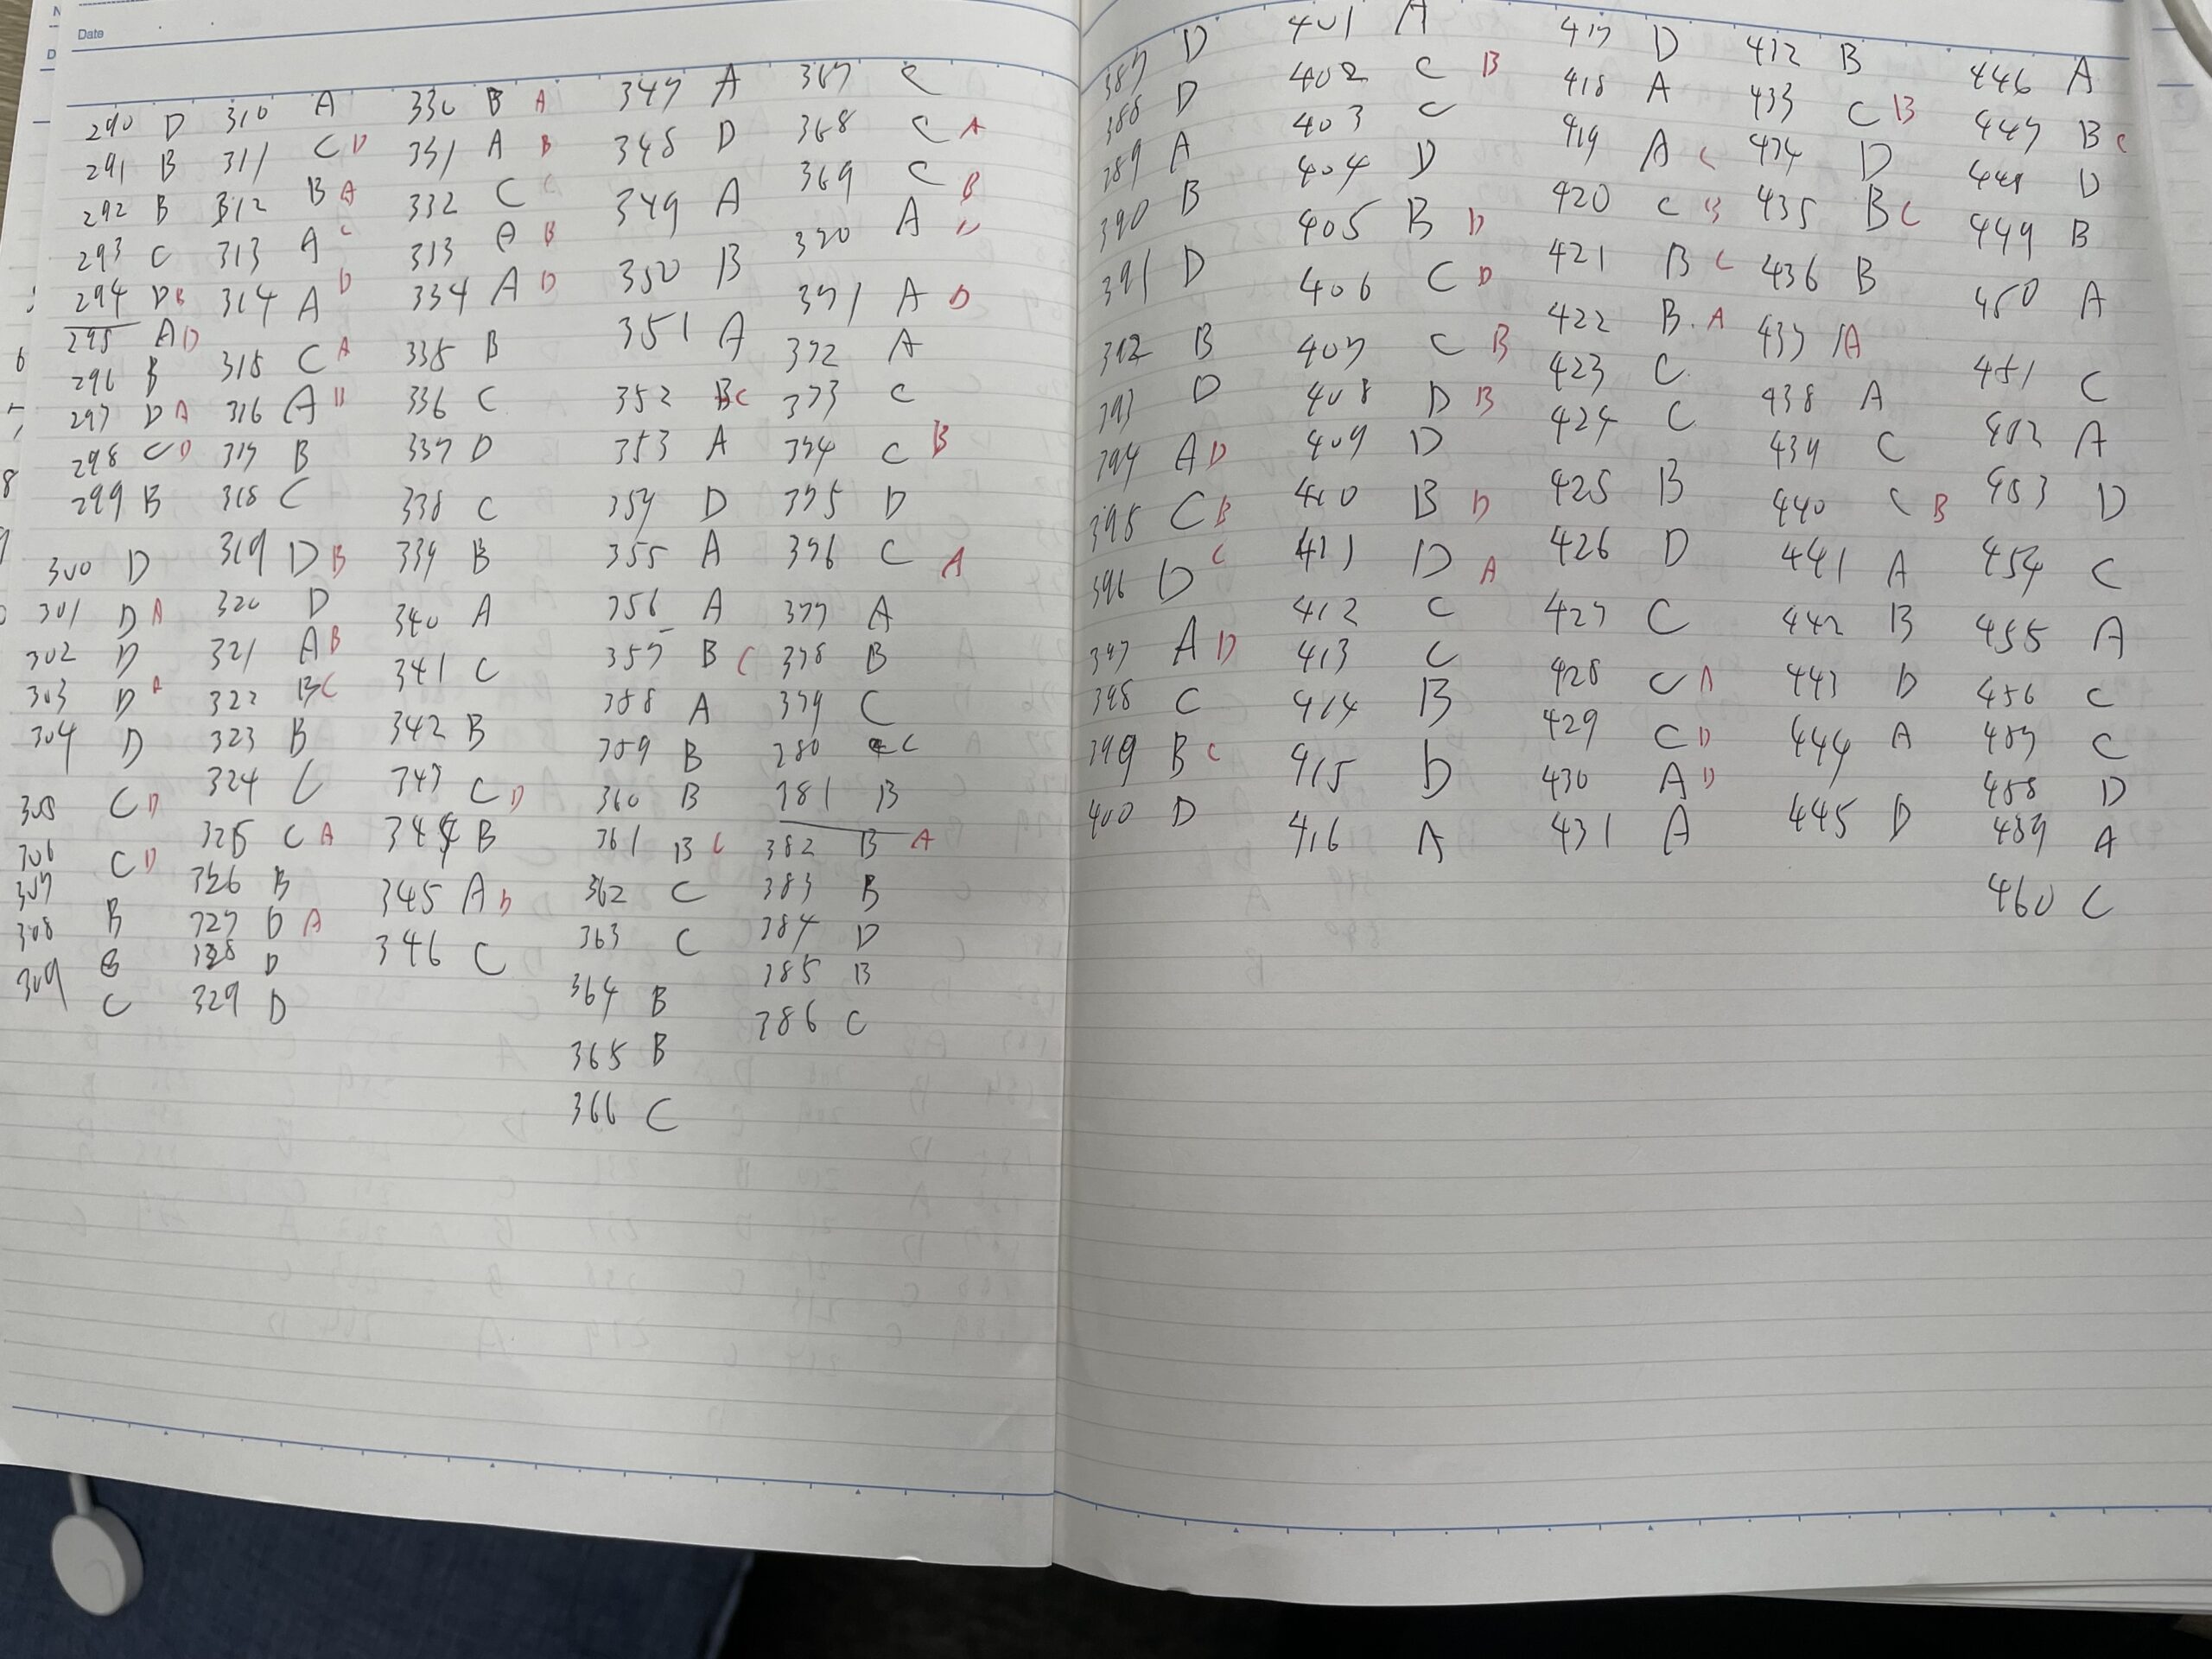 Date
290 D
291 B
292 B
293 C
294 D B
295 A D
296 B
297 D A
298 C D
299 B
300 D
301 D A
302 D
303 D A
304 D
305 C D
306 C D
307 B
308 B
309 C
310 A
311 C D
312 B A
313 A C
314 A D
315 C A
316 A B
317 B
318 C
319 D B
320 D
321 A B
322 B C
323 B
324 C
325 C A
326 B
327 D A
328 D
329 D
330 B A
331 A B
332 C C
333 A B
334 A D
335 B
336 C
337 D
338 C
339 B
340 A
341 C
342 B
343 C D
344 B
345 A D
346 C
347 A
348 D
349 A
350 B
351 A
352 B C
353 A
354 D
355 A
356 A
357 B C
358 A
359 B
360 B
361 B C
362 C
363 C
364 B
365 B
366 C
367 C
368 C A
369 C B
370 A C
371 A D
372 A
373 C
374 C B
375 D
376 C A
377 A
378 B
379 C
380 C
381 B
382 B A
383 B
384 D
385 B
386 C
387 D
388 D
389 A
390 B
391 D
392 B
393 D
394 A D
395 C B
396 D C
397 A D
398 C
399 B C
400 D
401 A
402 C B
403 C
404 D
405 B D
406 C D
407 C B
408 D B
409 D
410 B D
411 D A
412 C
413 C
414 B
415 D
416 A
417 D
418 A
419 A C
420 C B
421 B C
422 B A
423 C
424 C
425 B
426 D
427 C
428 C A
429 C D
430 A D
431 A
432 B
433 C B
434 D
435 B C
436 B
437 A
438 A
439 C
440 C B
441 A
442 B
443 D
444 A
445 D
446 A
447 B C
448 D
449 B
450 A
451 C
452 A
453 D
454 C
455 A
456 C
457 C
458 D
459 A
460 C